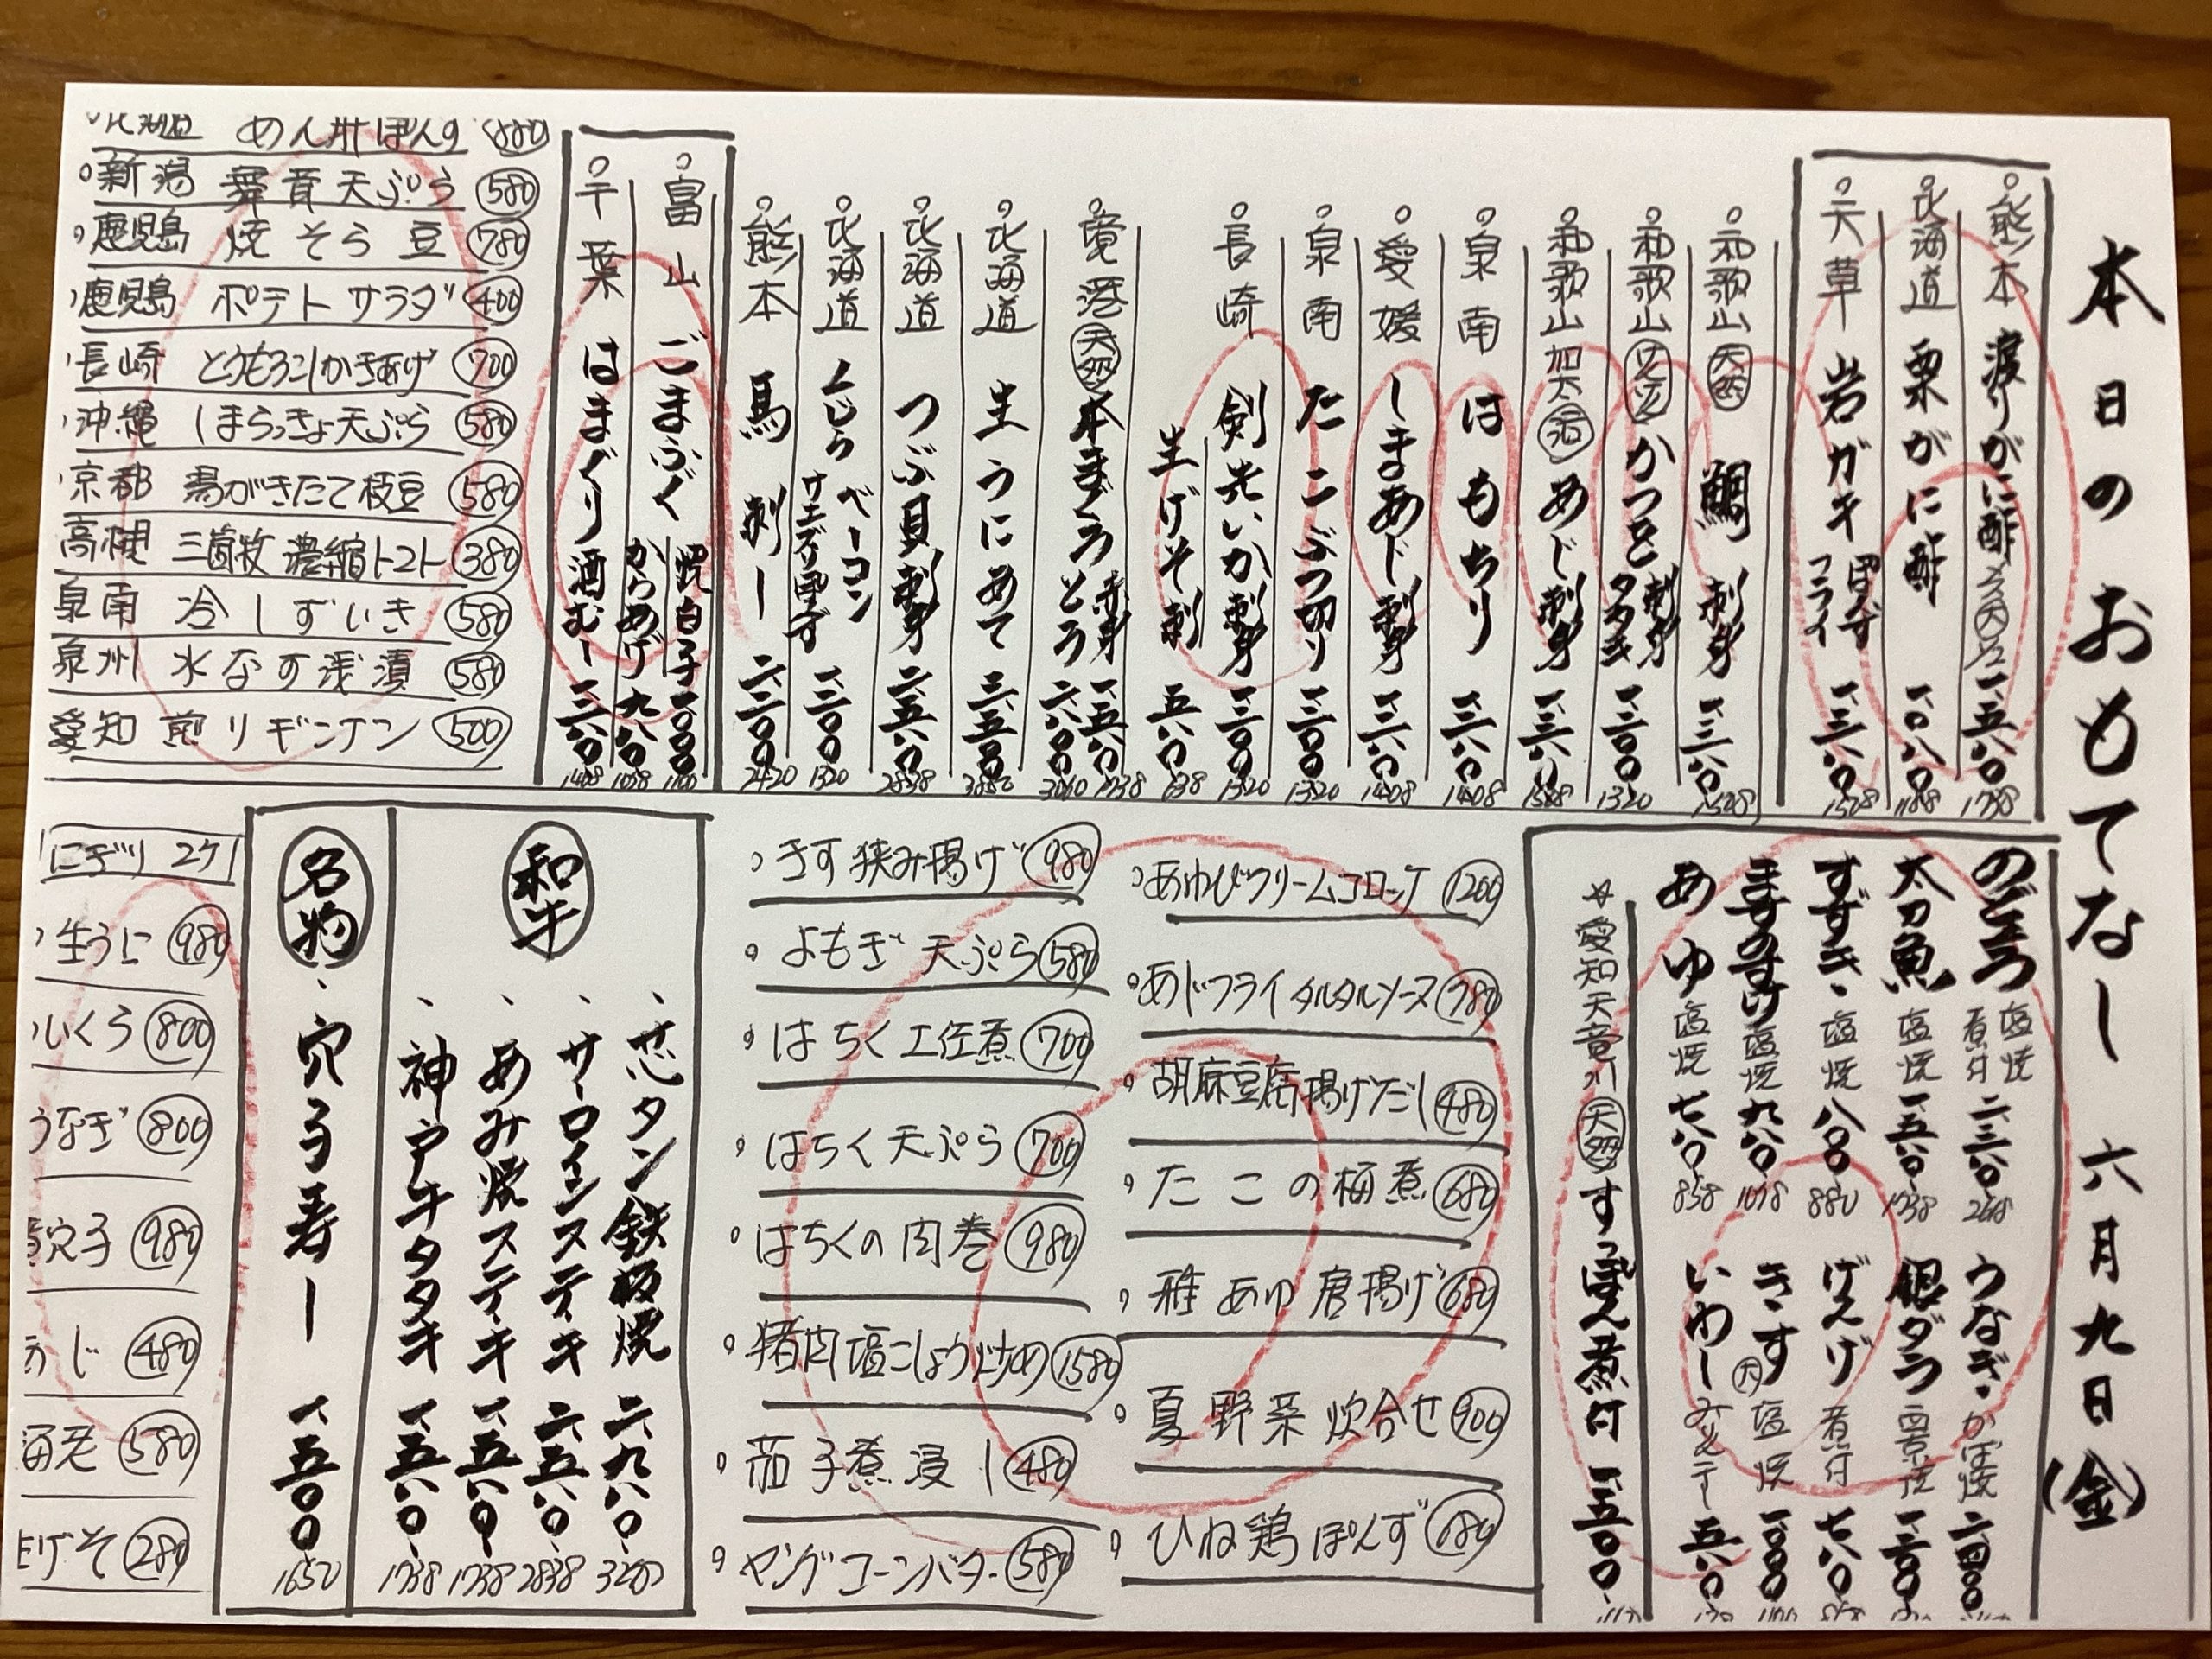 本日のおもてなし 六月九日(金)
熊本 渡りがに酢 メス 天 一、五八〇 1738
北海道 栗がに酢 一、〇八〇 1188
天草 岩ガキ ぽんず フライ 一、三八〇 1518
和歌山 天然 鯛 刺身 一、三八〇 1518
和歌山 かつを 刺身 タタキ 一、二〇〇 1320
和歌山 加太 活 あじ 刺身 一、三八〇 1518
泉南 はもちり 一、二八〇 1408
愛媛 しまあじ 刺身 一、二八〇 1408
泉南 たこぶつ切り 一、二〇〇 1320
長崎 剣先いか 刺身 一、二〇〇 1320
生げそ刺 五八〇 638
境港 天然 本まぐろ 赤身 一、五八〇 1738
とろ 二、八〇〇 3080
北海道 生うにあて 三、五〇〇 3850
北海道 つぶ貝 刺身 二、五八〇 2838
北海道 くじら ベーコン サエズリ 一、二〇〇 1320
熊本 馬刺し 二、二〇〇 2420
富山 ごまふぐ 焼白子 一、〇〇〇 1100
からあげ 九八〇 1078
千葉 はまぐり 酒むし 一、二八〇 1408
北海道 めん ぽんず 880
新潟 舞茸天ぷら 580
鹿児島 焼そら豆 780
鹿児島 ポテトサラダ 400
長崎 とうもろこしかきあげ 700
沖縄 しまらっきょ天ぷら 580
京都 湯がきたて枝豆 580
高槻 三箇牧 濃縮トマト 380
泉南 冷しずいき 580
泉州 水なす浅漬 580
愛知 煎りギンナン 500
のどぐろ 塩焼 煮付 二、三八〇 2618
太刀魚 塩焼 一、五八〇 1738
すずき 塩焼 八〇〇 880
ますのすけ 塩焼 九八〇 1078
あゆ 塩焼 七八〇 858
うなぎ かば焼 二、四〇〇
銀ダラ 西京焼 一、二〇〇
げんげ 煮付 七八〇
きす 天 塩焼 一、〇〇〇
いわし 五八〇
☆愛知天竜川 天然 すっぽん煮付 一、五〇〇
あわびクリームコロッケ 1200
あじフライ タルタルソース 780
胡麻豆腐揚げだし 480
たこの梅煮 680
稚あゆ唐揚げ 680
夏野菜炊合せ 900
ひね鶏ぽんず 680
きす挟み揚げ 980
よもぎ天ぷら 580
はちく土佐煮 700
はちく天ぷら 700
はちくの肉巻 980
猪肉塩こしょう炒め 1580
茄子煮浸し 480
ヤングコーンバター 580
和牛
芯タン鉄板焼 二、九八〇
サーロインステーキ 二、五八〇 2838
あみ焼ステーキ 一、五八〇 1738
神戸牛タタキ 一、五八〇 1738
名物
穴子寿し 一、五〇〇 1650
にぎり 2ケ
生うに 980
いくら 800
うなぎ 800
穴子 980
あじ 480
海老 580
げそ 280